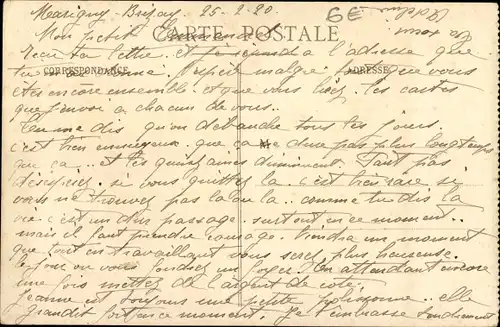 Marigny Brizay 25-2-20.
6E
CARTE POSTALE
Mon petit
recu ta lettre et je t'envoie à l'adresse que
tu J'espère malgré tout que vous
CORRESPONDANCE
ADRESSE
êtes encore ensemble et que vous lisez les cartes
que j'envoi à chacun de vous.
Tu me dis qu'on débauche tous les jours.
c'est bien ennuyeux que ça ne dure pas plus longtemps
que ça et les quinzaines diminuent. Faut pas
désespérer. si vous quittez la c'est bien rare si
vous ne trouvez pas la ou la comme tu dis la
vie c'est un dur passage surtout en ce moment.
mais il faut prendre courage. Viendra un moment
que tout en travaillant vous serez plus heureuse.
le jour ou vous foyer. En attendant encore
une fois mettez de l'argent de coté.
Jeanne est toujours une petite polissonne. elle
grandit fort en ce moment. Je t'embrasse tendrement